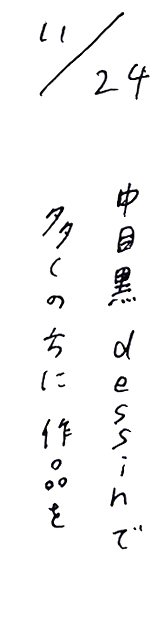 11/24
中目黒dessinで
多くのちに作品を